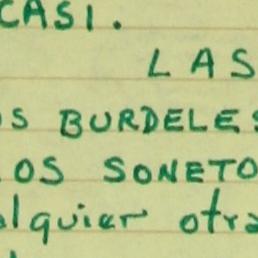 CASI.
LAS
OS BURDELES
LOS SONETO
alquier otra